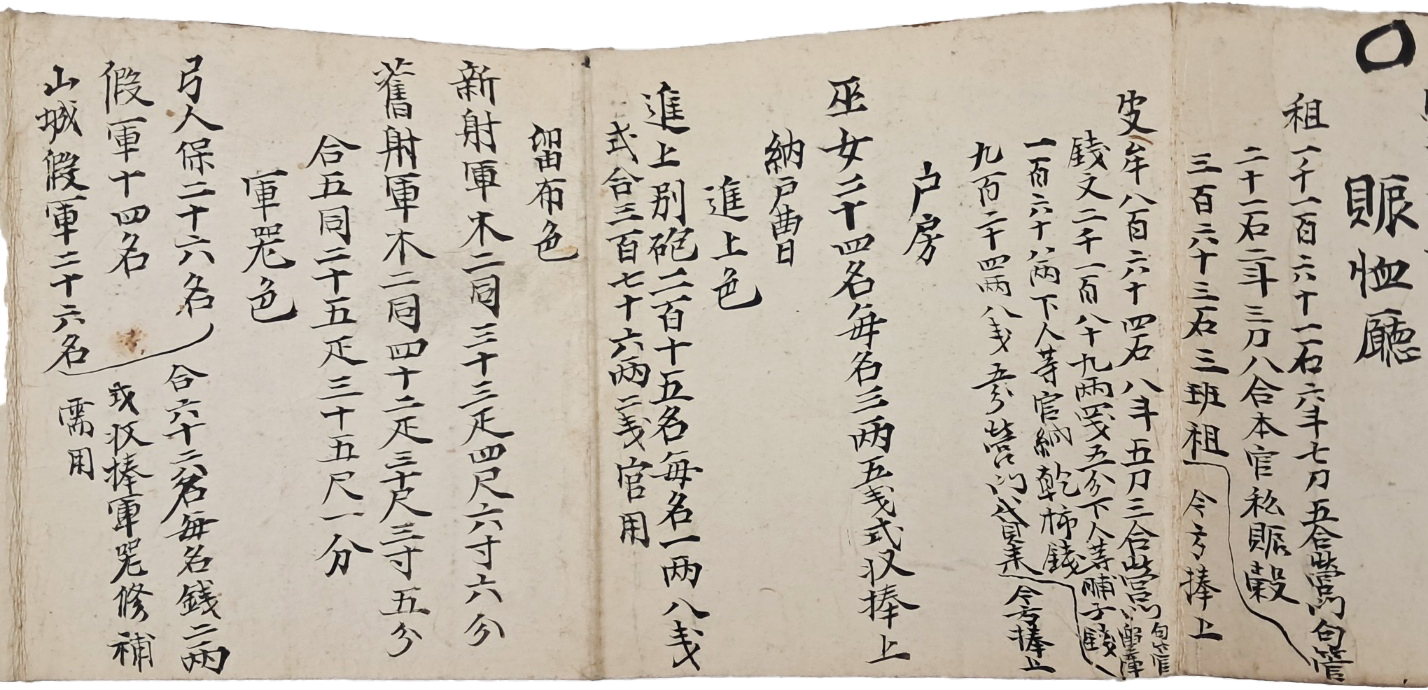 賑恤廳
租一千一百六十一石六斗七刀五合營門句管
二十一石二斗三刀八合本官私賑穀
三百六十三石三班租
今方捧上
皮牟八百六十四石八斗五刀三合營門句管
錢文二千一百八十九兩四戔五分下人等脯子錢
一百六十八兩下人等官納乾柿錢
九百二十四兩八戔五分營門貸來
今方捧上
户房
巫女二十四名每名三两五戔式収捧上
納户曹
進上色
進上別砲二百十五名每名一两八戔
式合三百七十六兩二戔官用
留布色
新射軍木二同三十三疋四尺六寸六分
舊射軍木二同四十二疋三十尺三寸五分
合五同二十五疋三十五尺一分
軍器色
弓人保二十六名
假軍十四名
山城假軍二十六名
合六十六名每名錢二兩
式収捧軍器修補
需用